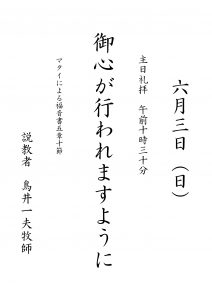 六月三日（日）
主日礼拝　午前十時三十分
御心が行われますように
マタイによる福音書五章十節
説教者　鳥井一夫牧師